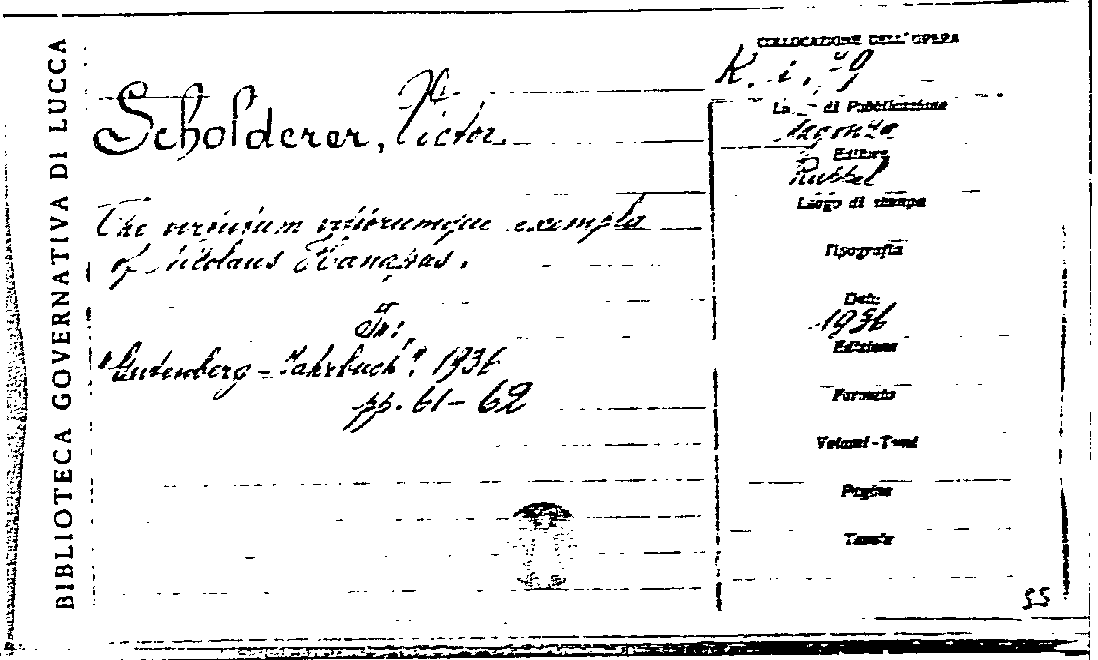 BIBLIOTECA GOVERNATIVA DI LUCCA
Scholderer, Victor.
The virtutum vitiorumque exempla
of Nicolaus Hanapus.
In:
"Gutenberg-Jahrbuch". 1936
pp. 61-62
COLLOCAZIONE DELL'OPERA
K. i,
di Pubblicazione
Magonza
Editore
Ruppel
Luogo di stampa
Tipografia
Data
1936
Edizione
Formato
Volumi-Tomi
Pagine
Tavole
55